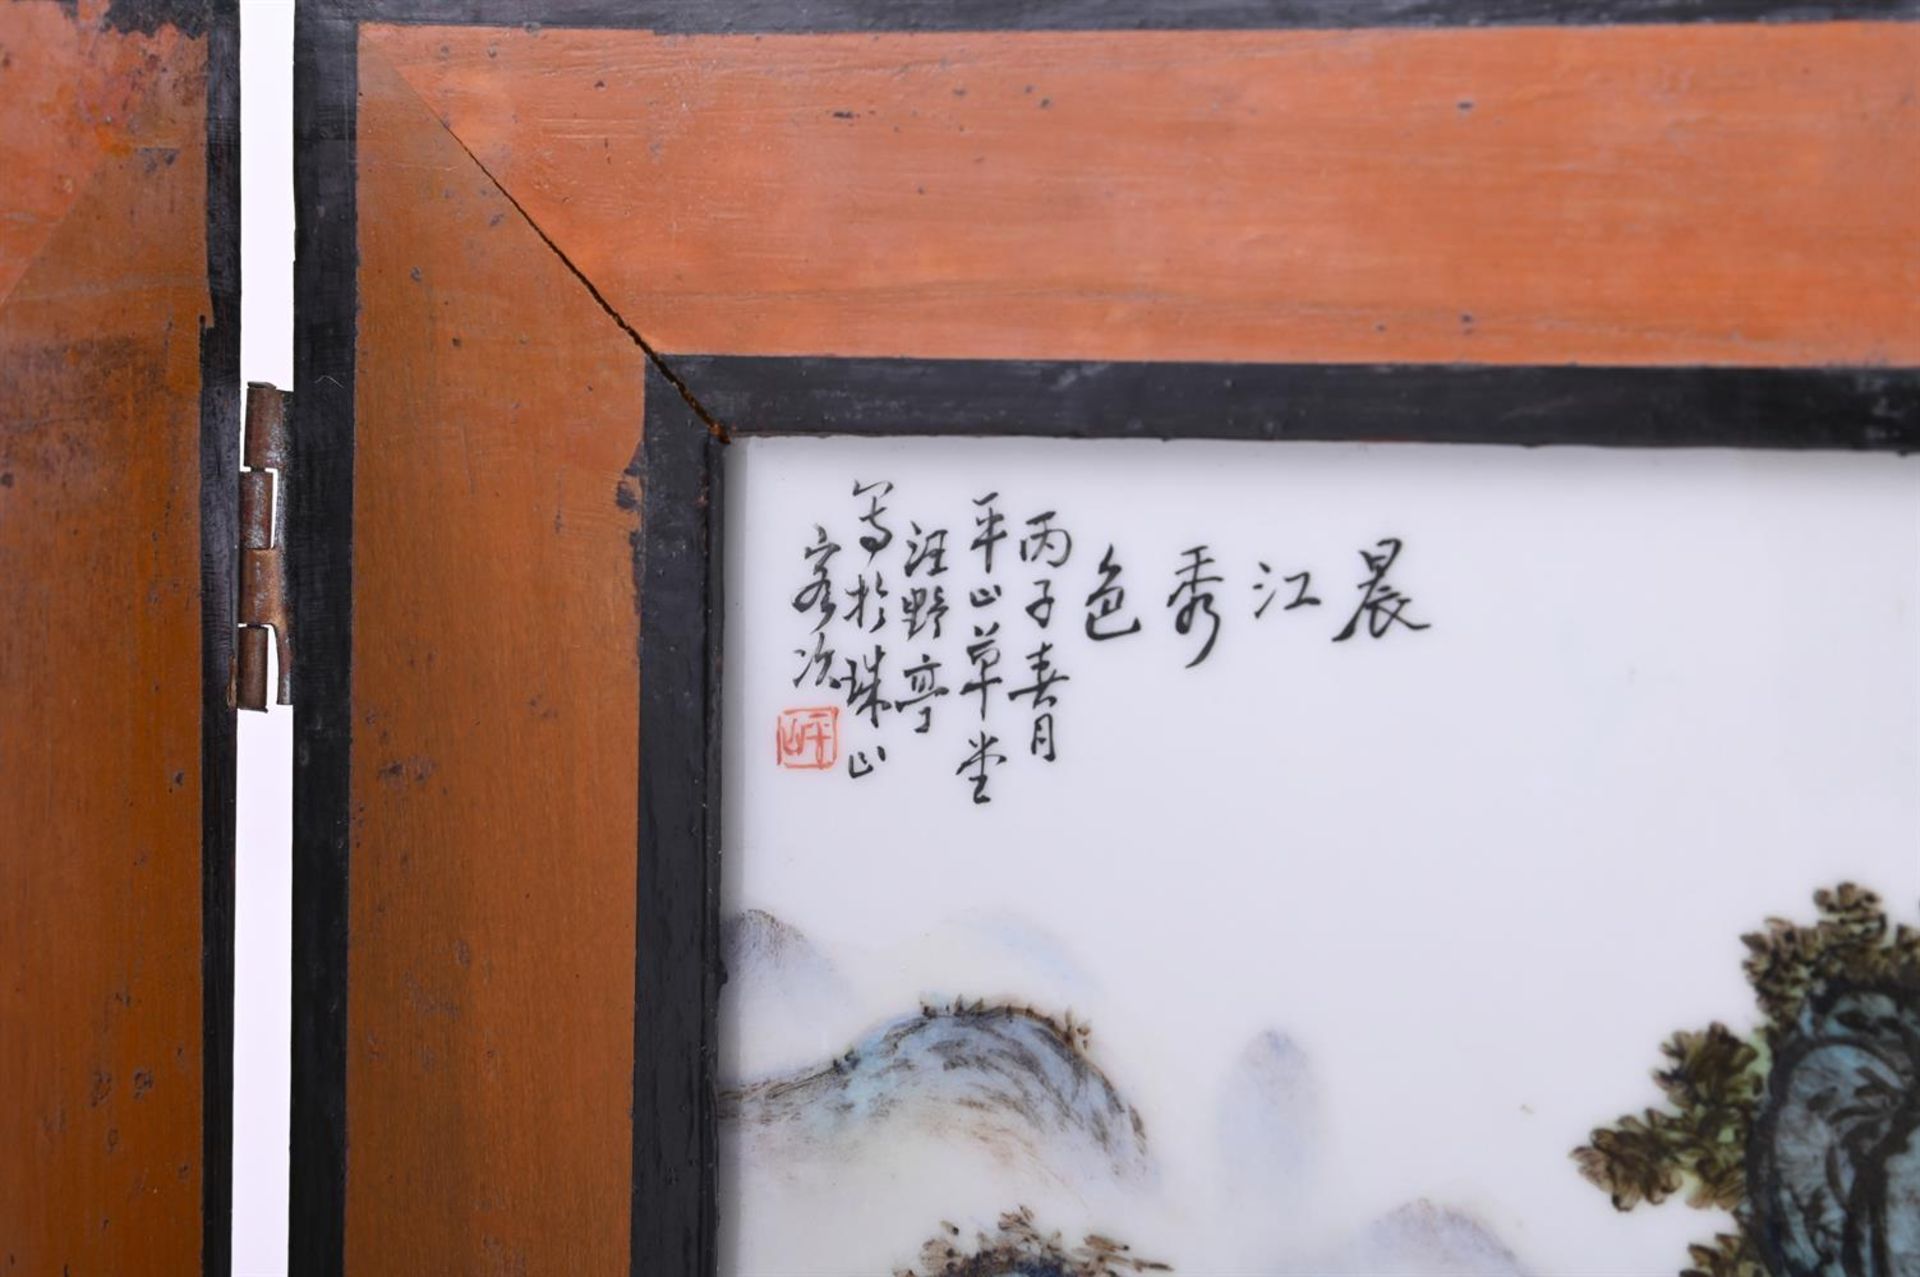 晨江秀色
丙子春月
平山草堂
汪野亭
写於珠山
客次
汪平